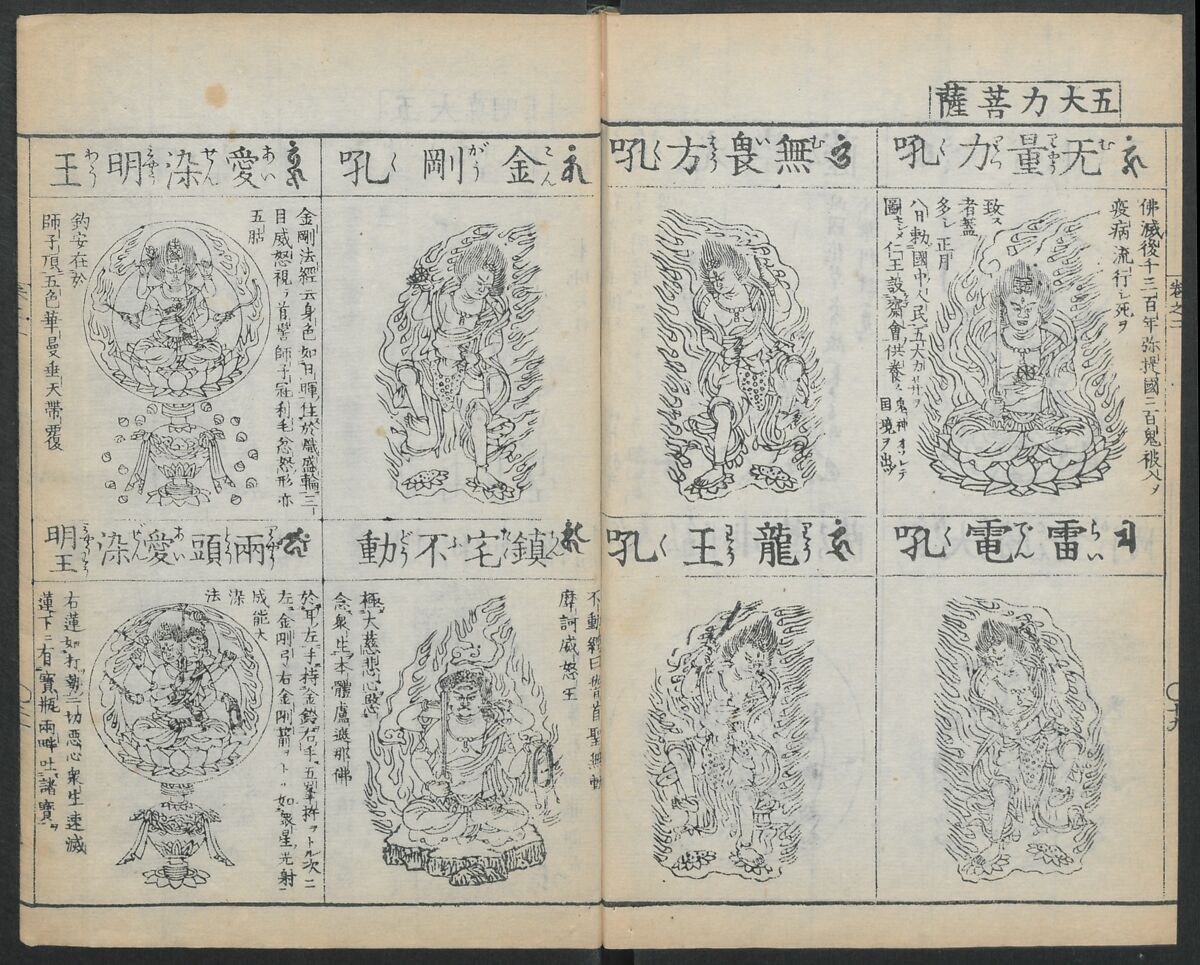 五大力菩薩
无量力吼
むりやうりつく
佛滅後千三百年弥提國三百鬼被入ヲ
疫病流行シ死ヲ
致ス
者蓋
多シ正月
八日勅國中人民五大力𦬇ヲ
圖セメ仁王設齋會供養ス鬼神オソレテ
国境ヲ出ツ
雷電吼
らいでんく
無畏方吼
龍王吼
卷之二
金剛吼
こんがうく
金剛法經云身色如日暉住於熾盛輪三
目威怒視ヲ首髻師子冠利毛忿怒形亦
五鈷
鈎安在於
師子頂五色華曼垂天帶覆
愛染明王
あいせんみやうわう
鎮宅不動
不動經曰䭫首聖無動
摩訶威怒王
極大慈悲心愍
念衆生本體盧遮那佛
兩頭愛染明王
於耳左手持金鈴右手五峯杵ヲトル次ニ
左金剛弓右金剛箭ヲトリ如衆星光射ニ
成能大
染
法
右蓮如打勢一切惡心衆生速滅
蓮下ニ有寶瓶兩畔吐諸寶ヲ